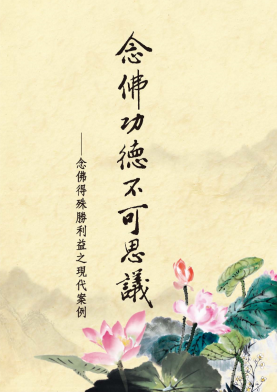 念佛功德不可思議
——念佛得殊勝利益之現代案例